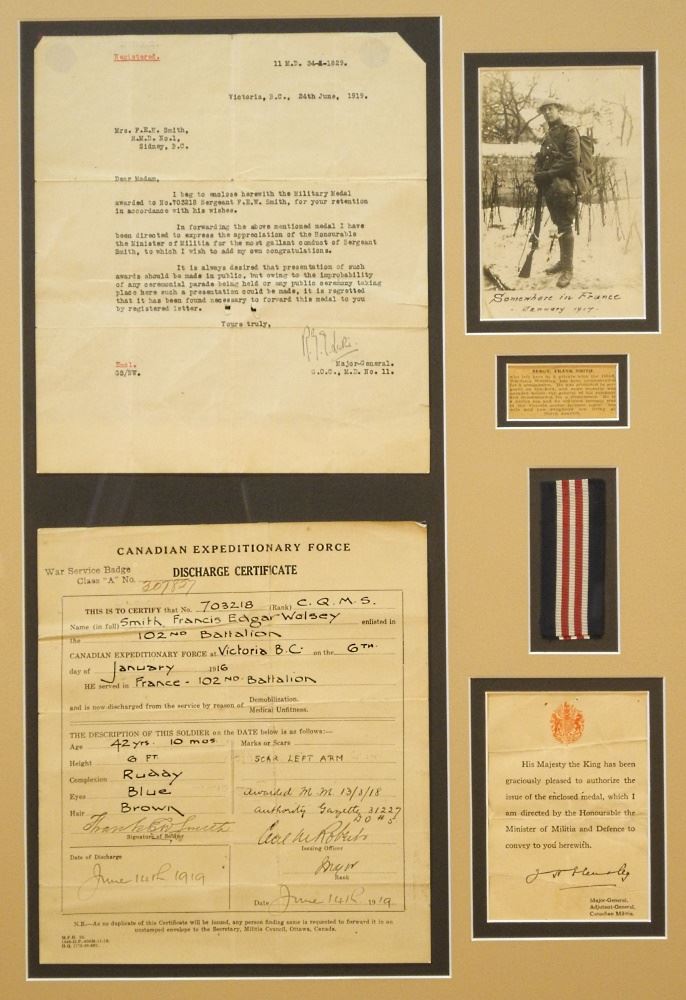 Registered.
11 M.D. 34-1-1829.
Victoria, B.C., 24th June, 1919.
Mrs. F.E.W. Smith,
R.M.D. No.1,
Sidney, B.C.
Dear Madam,
I beg to enclose herewith the Military Medal
awarded to No.703218 Sergeant F.E.W. Smith, for your retention
in accordance with his wishes.
In forwarding the above mentioned medal I have
been directed to express the appreciation of the Honourable
the Minister of Militia for the most gallant conduct of Sergeant
Smith, to which I wish to add my own congratulations.
It is always desired that presentation of such
awards should be made in public, but owing to the improbability
of any ceremonial parade being held or any public ceremony taking
place here such a presentation could be made, it is regretted
that it has been found necessary to forward this medal to you
by registered letter.
Yours truly,
Major-General.
G.O.C., M.D. No. 11.
Encl.
GS/EW.
Somewhere in France
- January 1917-
SERGT. FRANK SMITH,
CANADIAN EXPEDITIONARY FORCE
War Service Badge
Class "A" No.
DISCHARGE CERTIFICATE
THIS IS TO CERTIFY that No. 703218 (Rank) C.Q.M.S.
Name (in full) Smith, Francis Edgar Wolsey enlisted in
the 102ND Battalion
CANADIAN EXPEDITIONARY FORCE at Victoria B.C. on the 6TH
day of January 1916
HE served in France - 102ND Battalion
and is now discharged from the service by reason of Demobilization.
Medical Unfitness.
THE DESCRIPTION OF THIS SOLDIER on the DATE below is as follows:—
Age 42 yrs. 10 mos.
Height 6 FT
Complexion Ruddy
Eyes Blue
Hair Brown
Frank E W Smith
Signature of Soldier
Date of Discharge
June 14th 1919
Marks or Scars
SCAR LEFT ARM
awarded M M 13/3/18
authority Gazette 31227
Issuing Officer
Major
Rank
Date June 14th 1919
N.B.—As no duplicate of this Certificate will be issued, any person finding same is requested to forward it in an
unstamped envelope to the Secretary, Militia Council, Ottawa, Canada.
His Majesty the King has been
graciously pleased to authorize the
issue of the enclosed medal, which I
am directed by the Honourable the
Minister of Militia and Defence to
convey to you herewith.
Major-General,
Adjutant-General,
Canadian Militia.